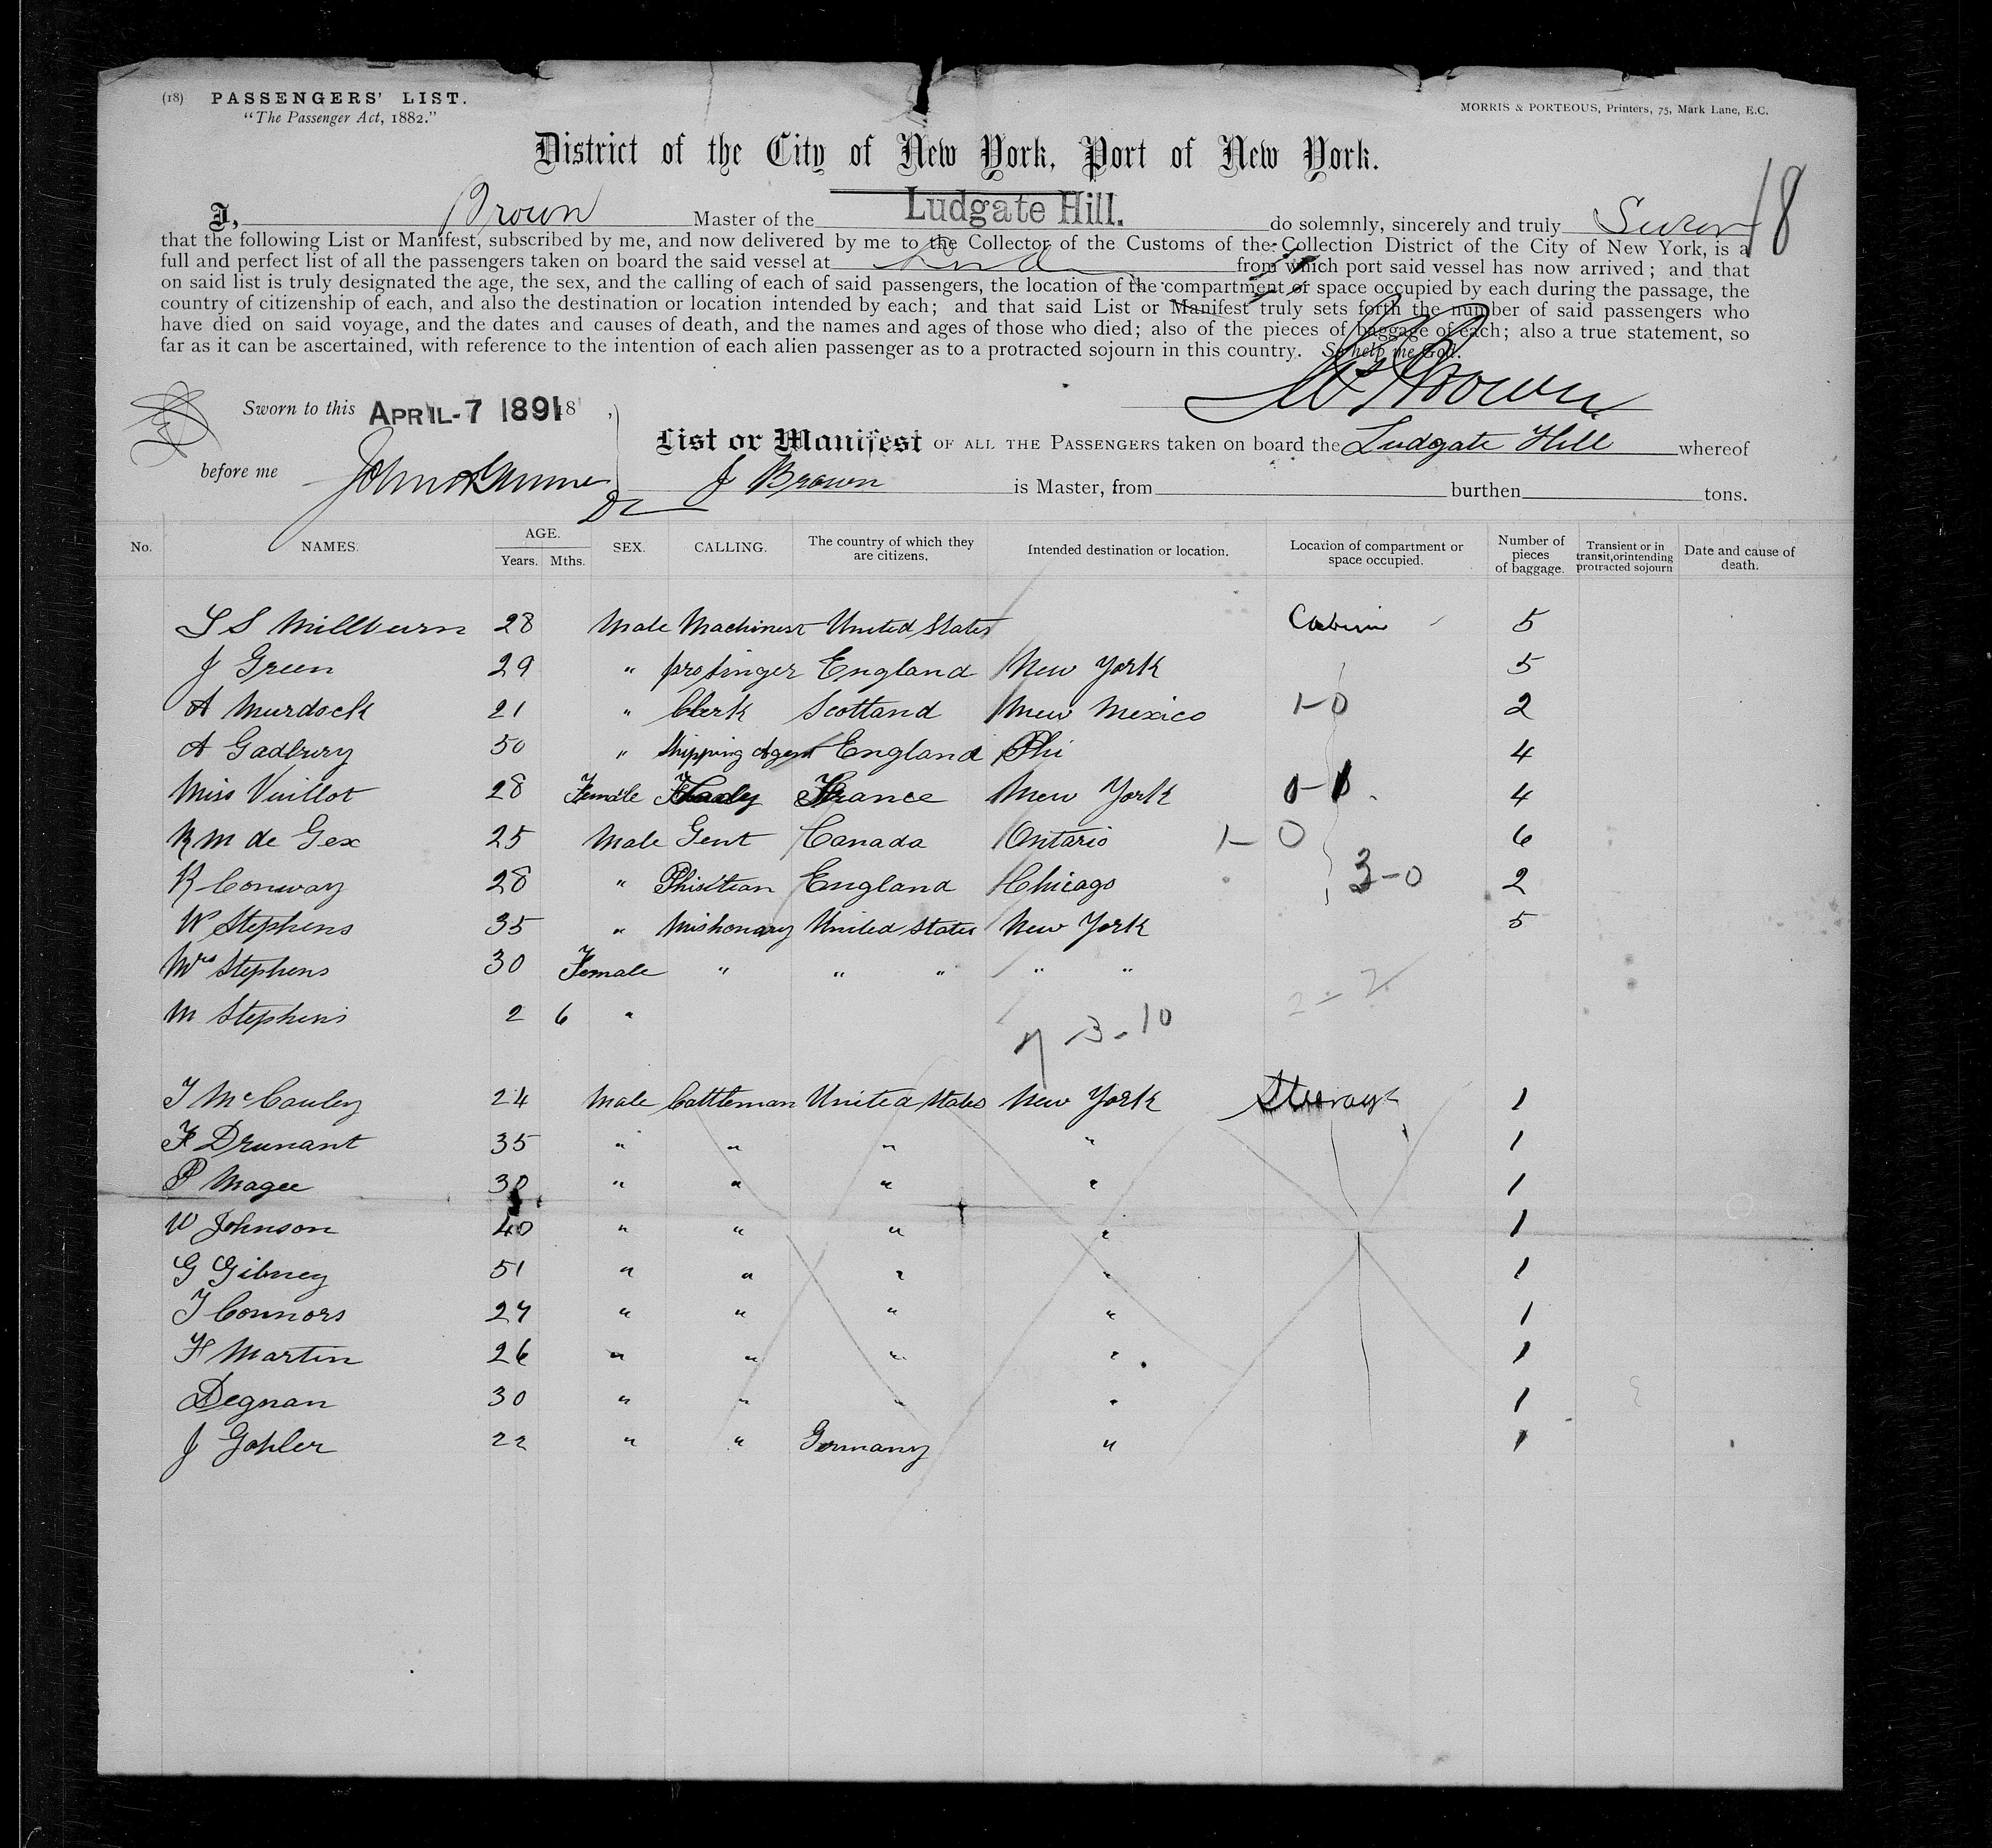 (18) PASSENGERS' LIST.
"The Passenger Act, 1882."
MORRIS & PORTEOUS, Printers, 75, Mark Lane, E.C.
District of the City of New York, Port of New York.
18
I, Brown Master of the Ludgate Hill. do solemnly, sincerely and truly Swear
that the following List or Manifest, subscribed by me, and now delivered by me to the Collector of the Customs of the Collection District of the City of New York, is a
full and perfect list of all the passengers taken on board the said vessel at from which port said vessel has now arrived; and that
on said list is truly designated the age, the sex, and the calling of each of said passengers, the location of the compartment or space occupied by each during the passage, the
country of citizenship of each, and also the destination or location intended by each; and that said List or Manifest truly sets forth the number of said passengers who
have died on said voyage, and the dates and causes of death, and the names and ages of those who died; also of the pieces of baggage of each; also a true statement, so
far as it can be ascertained, with reference to the intention of each alien passenger as to a protracted sojourn in this country. So help me God.
Brown
Sworn to this APRIL-7 1891 18 ,
List or Manifest OF ALL THE PASSENGERS taken on board the Ludgate Hill whereof
before me John
J Brown is Master, from burthen tons.
No. NAMES. AGE. Years. Mths. SEX. CALLING. The country of which they are citizens. Intended destination or location. Location of compartment or space occupied. Number of pieces of baggage. Transient or in transit,orintending protracted sojourn Date and cause of death.
S S Millburn 28 Male Machinest United States Cabin 5
J Green 29 " pro singer England New York 5
A Murdock 21 " Clerk Scotland New Mexico 1-0 2
A Gadbury 50 " Shipping Agent England Phi 4
Miss Vuillot 28 Female Lady France New York 0-1 4
R M de Gex 25 Male Gent Canada Ontario 1-0 6
R Conway 28 " Phisitian England Chicago 3-0 2
W Stephens 35 " Mishonary United States New York 5
Mrs Stephens 30 Female " " " " "
M Stephens 2 6 " 2-2
7-3-10
T McCauley 24 Male Cattleman United States New York Steerage 1
F Drunant 35 " " " " 1
P Magee 30 " " " " 1
W Johnson 40 " " " " 1
G Gibney 51 " " " " 1
T Connors 27 " " " " 1
H Martin 26 " " " " 1
Degnan 30 " " " " 1
J Gohler 22 " " Germany " 1